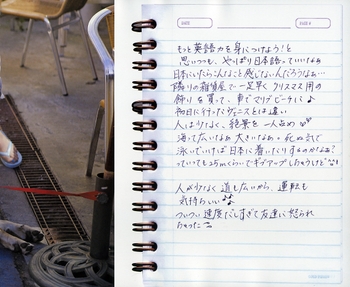 DATE
もっと英語力を身につけよう！と
思いつつも、やっぱり日本語っていいなぁ
日本にいたらこんなこと感じないんだろうなぁ…
隣りの雑貨屋で一足早くクリスマス用の
飾りを買って、車でマリブビーチに♪
初日に行ったヴェニスとは違い
人は少なく、絶景を一人占め
海って広いなぁ 大きいなぁ。死ぬ気で
泳いでいけば日本に着いたりするのかなぁ？
っていても25mくらいでギブアップしちゃうけどな
人が少なく道も広いから、運転も
気持ちいい♪
ついつい速度だしすぎて友達に怒られ
ちゃった